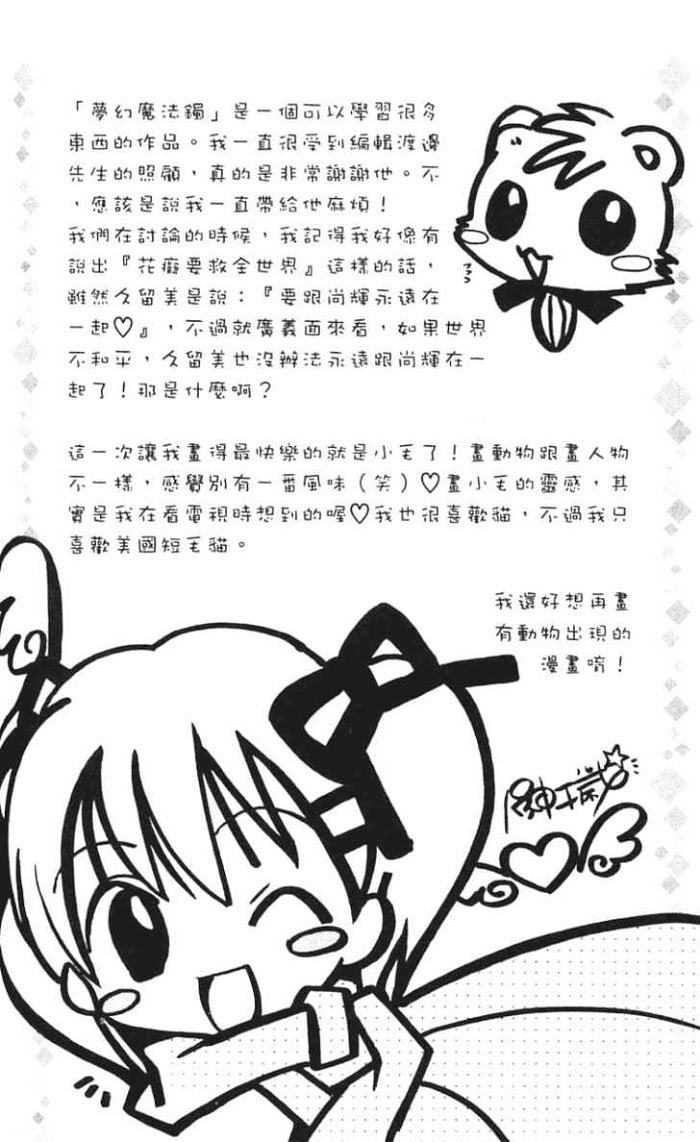 「夢幻魔法鐲」是一個可以學習很多
東西的作品。我一直很受到編輯渡邊
先生的照顧，真的是非常謝謝他。不
，應該是說我一直帶給他麻煩！
我們在討論的時候，我記得我好像有
說出『花癡要救全世界』這樣的話，
雖然久留美是說：『要跟尚輝永遠在
一起♡』，不過就廣義面來看，如果世界
不和平，久留美也沒辦法永遠跟尚輝在一
起了！那是什麼啊？
這一次讓我畫得最快樂的就是小毛了！畫動物跟畫人物
不一樣，感覺別有一番風味（笑）♡畫小毛的靈感，其
實是我在看電視時想到的喔♡我也很喜歡貓，不過我只
喜歡美國短毛貓。
我還好想再畫
有動物出現的
漫畫唷！